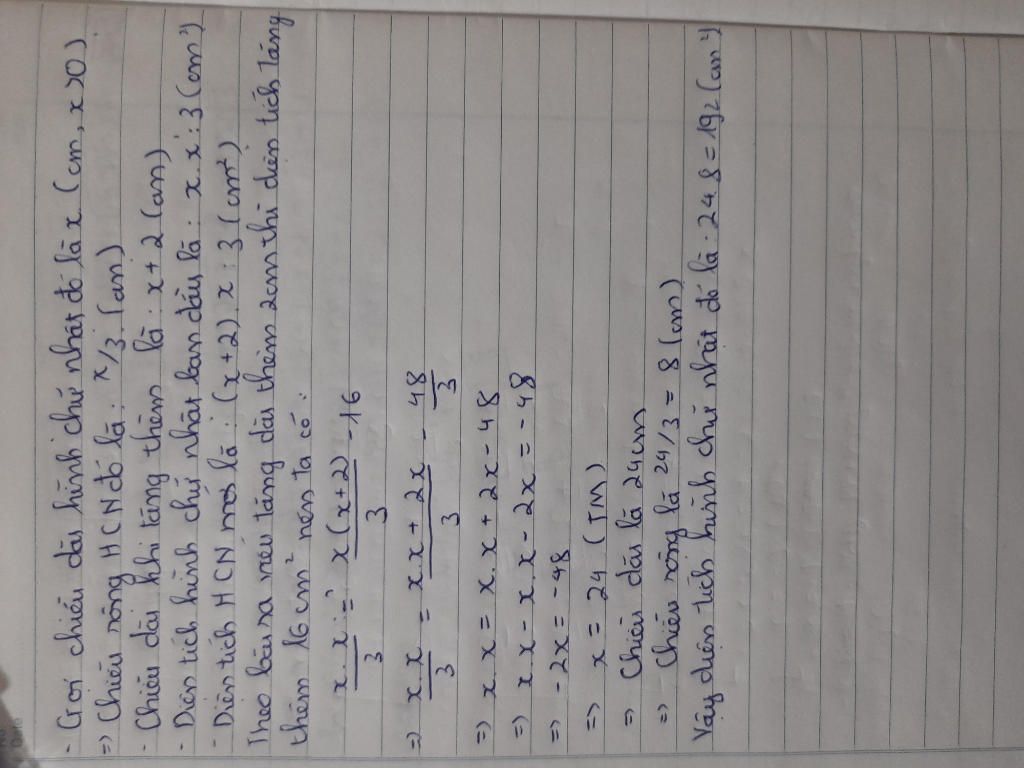 - Gọi chiều dài hình chữ nhật đó là x (cm, x>0)
=> Chiều rộng HCN đó là: x/3 (cm)
- Chiều dài khi tăng thêm là: x + 2 (cm)
- Diện tích hình chữ nhật ban đầu là: x. x : 3 (cm²)
- Diện tích HCN mới là: (x+2). x : 3 (cm²)
Theo bài ra nếu tăng dài thêm 2cm thì diện tích tăng
thêm 16 cm² nên ta có:
x. x / 3 = x(x+2) / 3 - 16
=> x. x / 3 = x.x + 2x / 3 - 48 / 3
=> x. x = x. x + 2x - 48
=> x. x - x. x - 2x = - 48
=> -2x = -48
=> x = 24 (TM)
=> Chiều dài là 24cm
=> Chiều rộng là 24/3 = 8 (cm)
Vậy diện tích hình chữ nhật đó là: 24.8 = 192 (cm²)